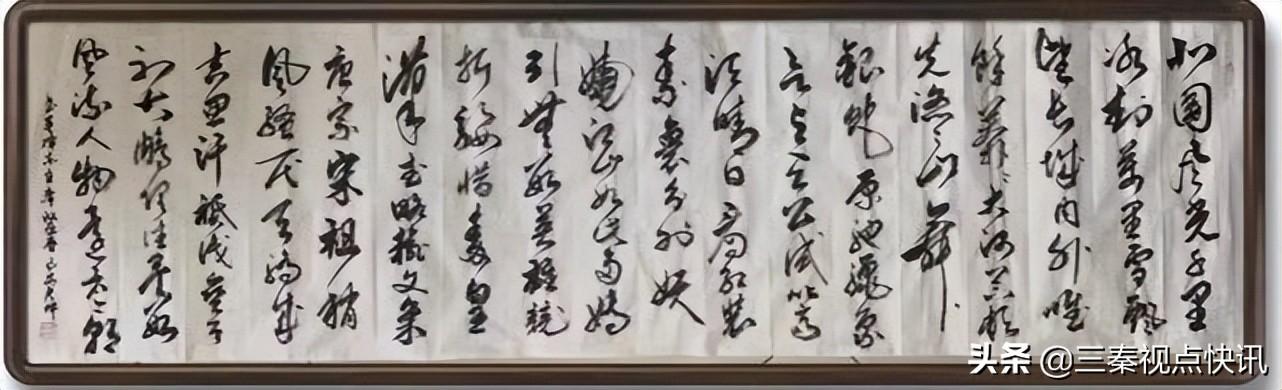 北国风光千里
冰封万里雪飘
望长城内外唯
餘莽莽大河上下顿
失滔滔山舞
銀蛇原驰蜡象
欲与天公试比高
须晴日看红装
素裹分外妖
娆江山如此多娇
引無数英雄競
折腰惜秦皇
漢武略输文采
唐宗宋祖稍
風騷一代天骄成
吉思汗祗识弯弓
射大雕俱往矣数
風流人物還看今朝
头条 @三秦视点快讯